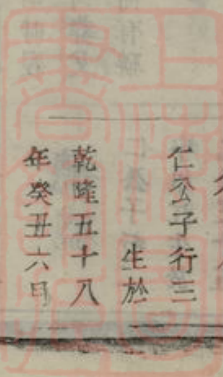 仁公子行三
生於
乾隆五十八
年癸丑六月